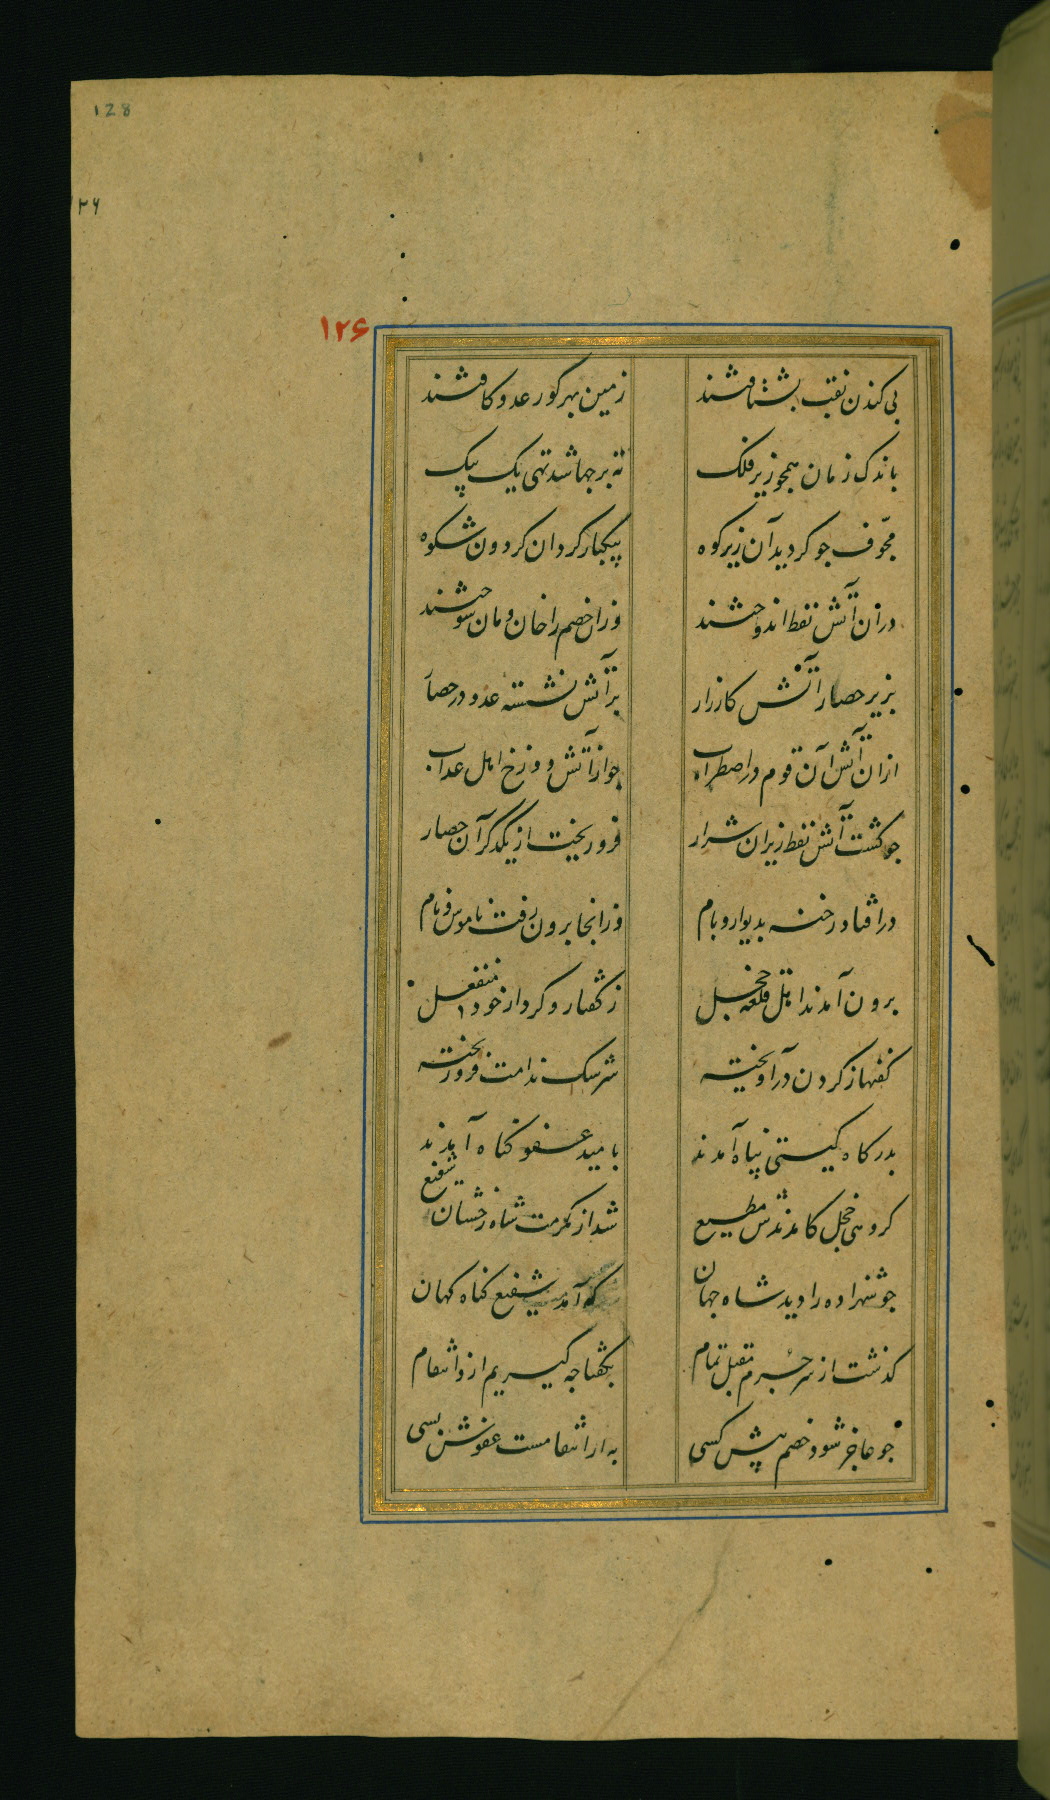 128
۱۲۶
۱۲۶
پی کندن نقب بشتافتند زمین بهر کور عدو کافتند
باندک زمان همجو زیر فلک ته برجها شد تهی یک بیک
مجوّف جو کردید آن زیر کوه بیکبار کردان کردون شکوه
دران آتش نفط اندوختند وزان خصم را خان و مان سوختند
بزیر حصار آتش کارزار بر آتش نشسته عدو در حصار
ازان آتش آن قوم در اضطراب جو از آتش دوزخ اهل عذاب
جو کشت آتش نفط زیران شرار فرو ریخت از یکدکر آن حصار
در افتاد رخنه بدیوار و بام وز انجا برون رفت ناموس و نام
برون آمدند اهل قلعه خجل ز کفتار و کردار خود منفعل
کفنها ز کردن در آویخته سرشک ندامت فرو ریخته
بدرکاه کیتی پناه آمدند بامید عفو کناه آمدند
کروهی خجل کامدندش مطیع شد از مکرمت شاه رخشان شفیع
جو شهزاده را دید شاه جهان که آمد شفیع کناه کهان
کذشت از سر جرم مقبل تمام بکفتا جه کیریم ازو انتقام
جو عاجز شود خصم پیش کسی به از انتقامست عفوش بسی